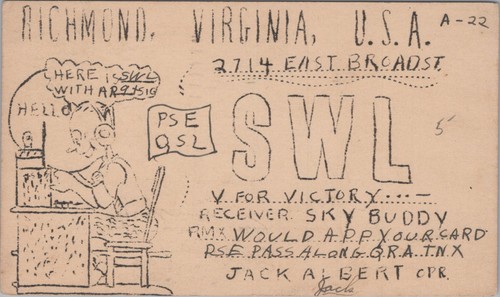 RICHMOND. VIRGINIA, U.S.A.
A-22
2714 EAST BROAD ST.
HERE IS SWL
WITH AR9 SIG
HELLO
PSE
QSL
SWL
5
V FOR VICTORY...-
RECEIVER SKY BUDDY
RMX WOULD APP YOUR CARD
PSE PASS ALONG QRA. TNX
JACK ALBERT OPR.
Jack